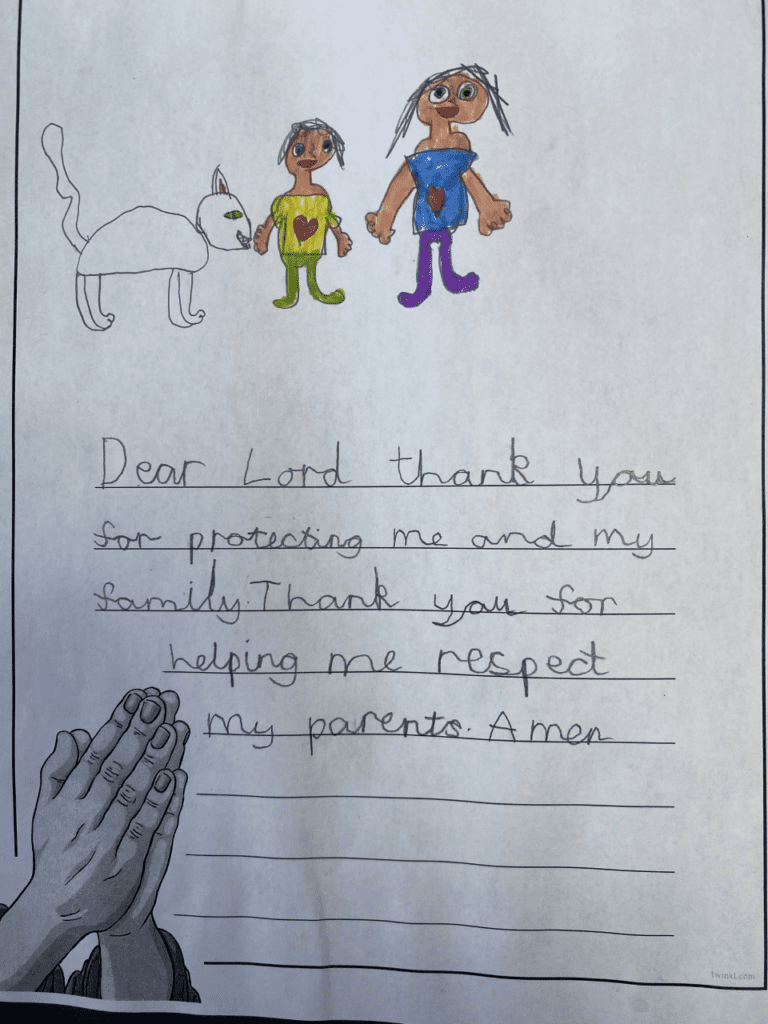 Dear Lord thank you
for protecting me and my
family. Thank you for
helping me respect
my parents. Amen
twinkl.com